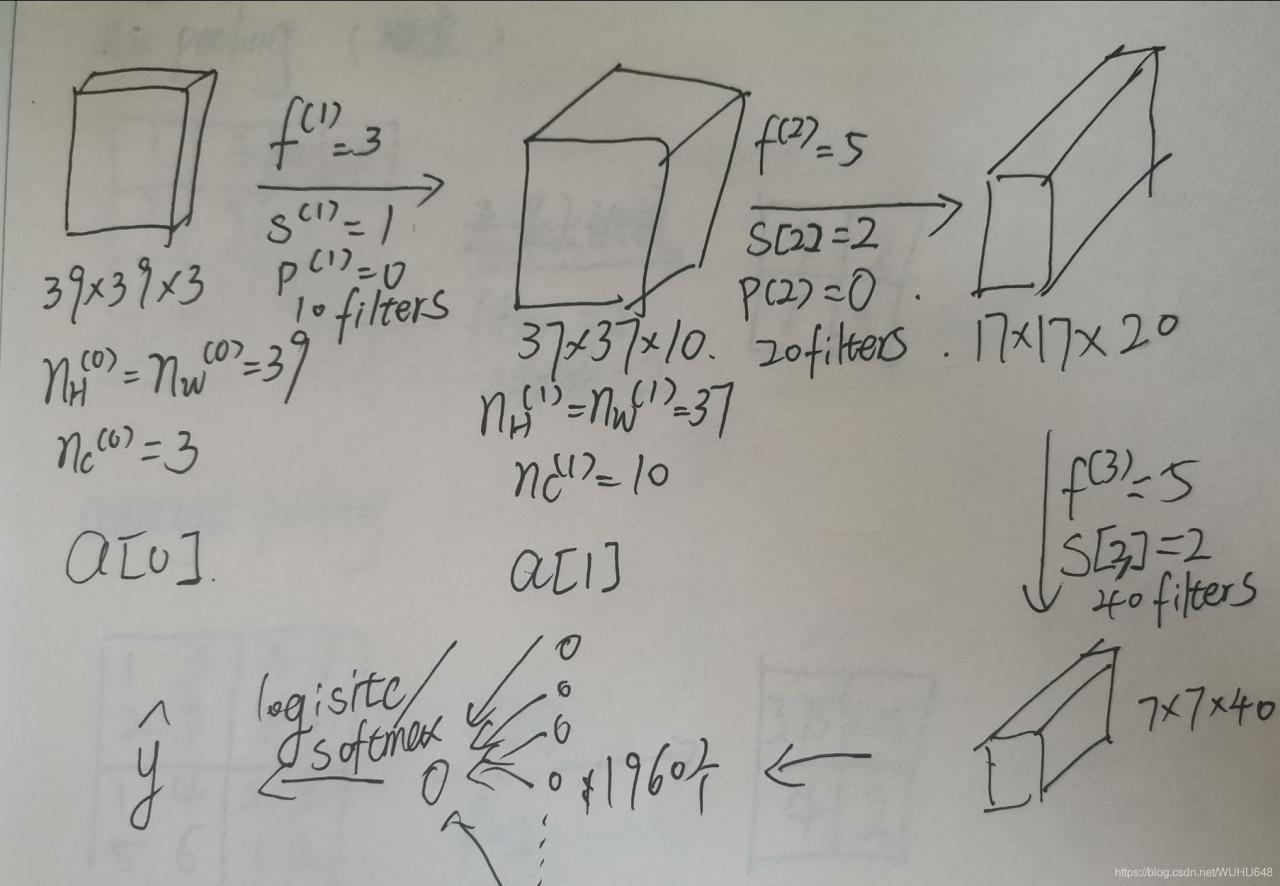 f(1)=3
s(1)=1
p(1)=0
10 filters
39×39×3
nH(0)=nW(0)=39
nc(0)=3
a[0].
f(2)=5
S[2]=2
p(2)=0.
20 filters.
37×37×10.
nH(1)=nW(1)=37
nc(1)=10
a[1]
17×17×20
f(3)=5
S[3]=2
40 filters
7×7×40
1960个
0
0
0
0
0
logisitc/
softmax
ŷ
https://blog.csdn.net/WUHU648